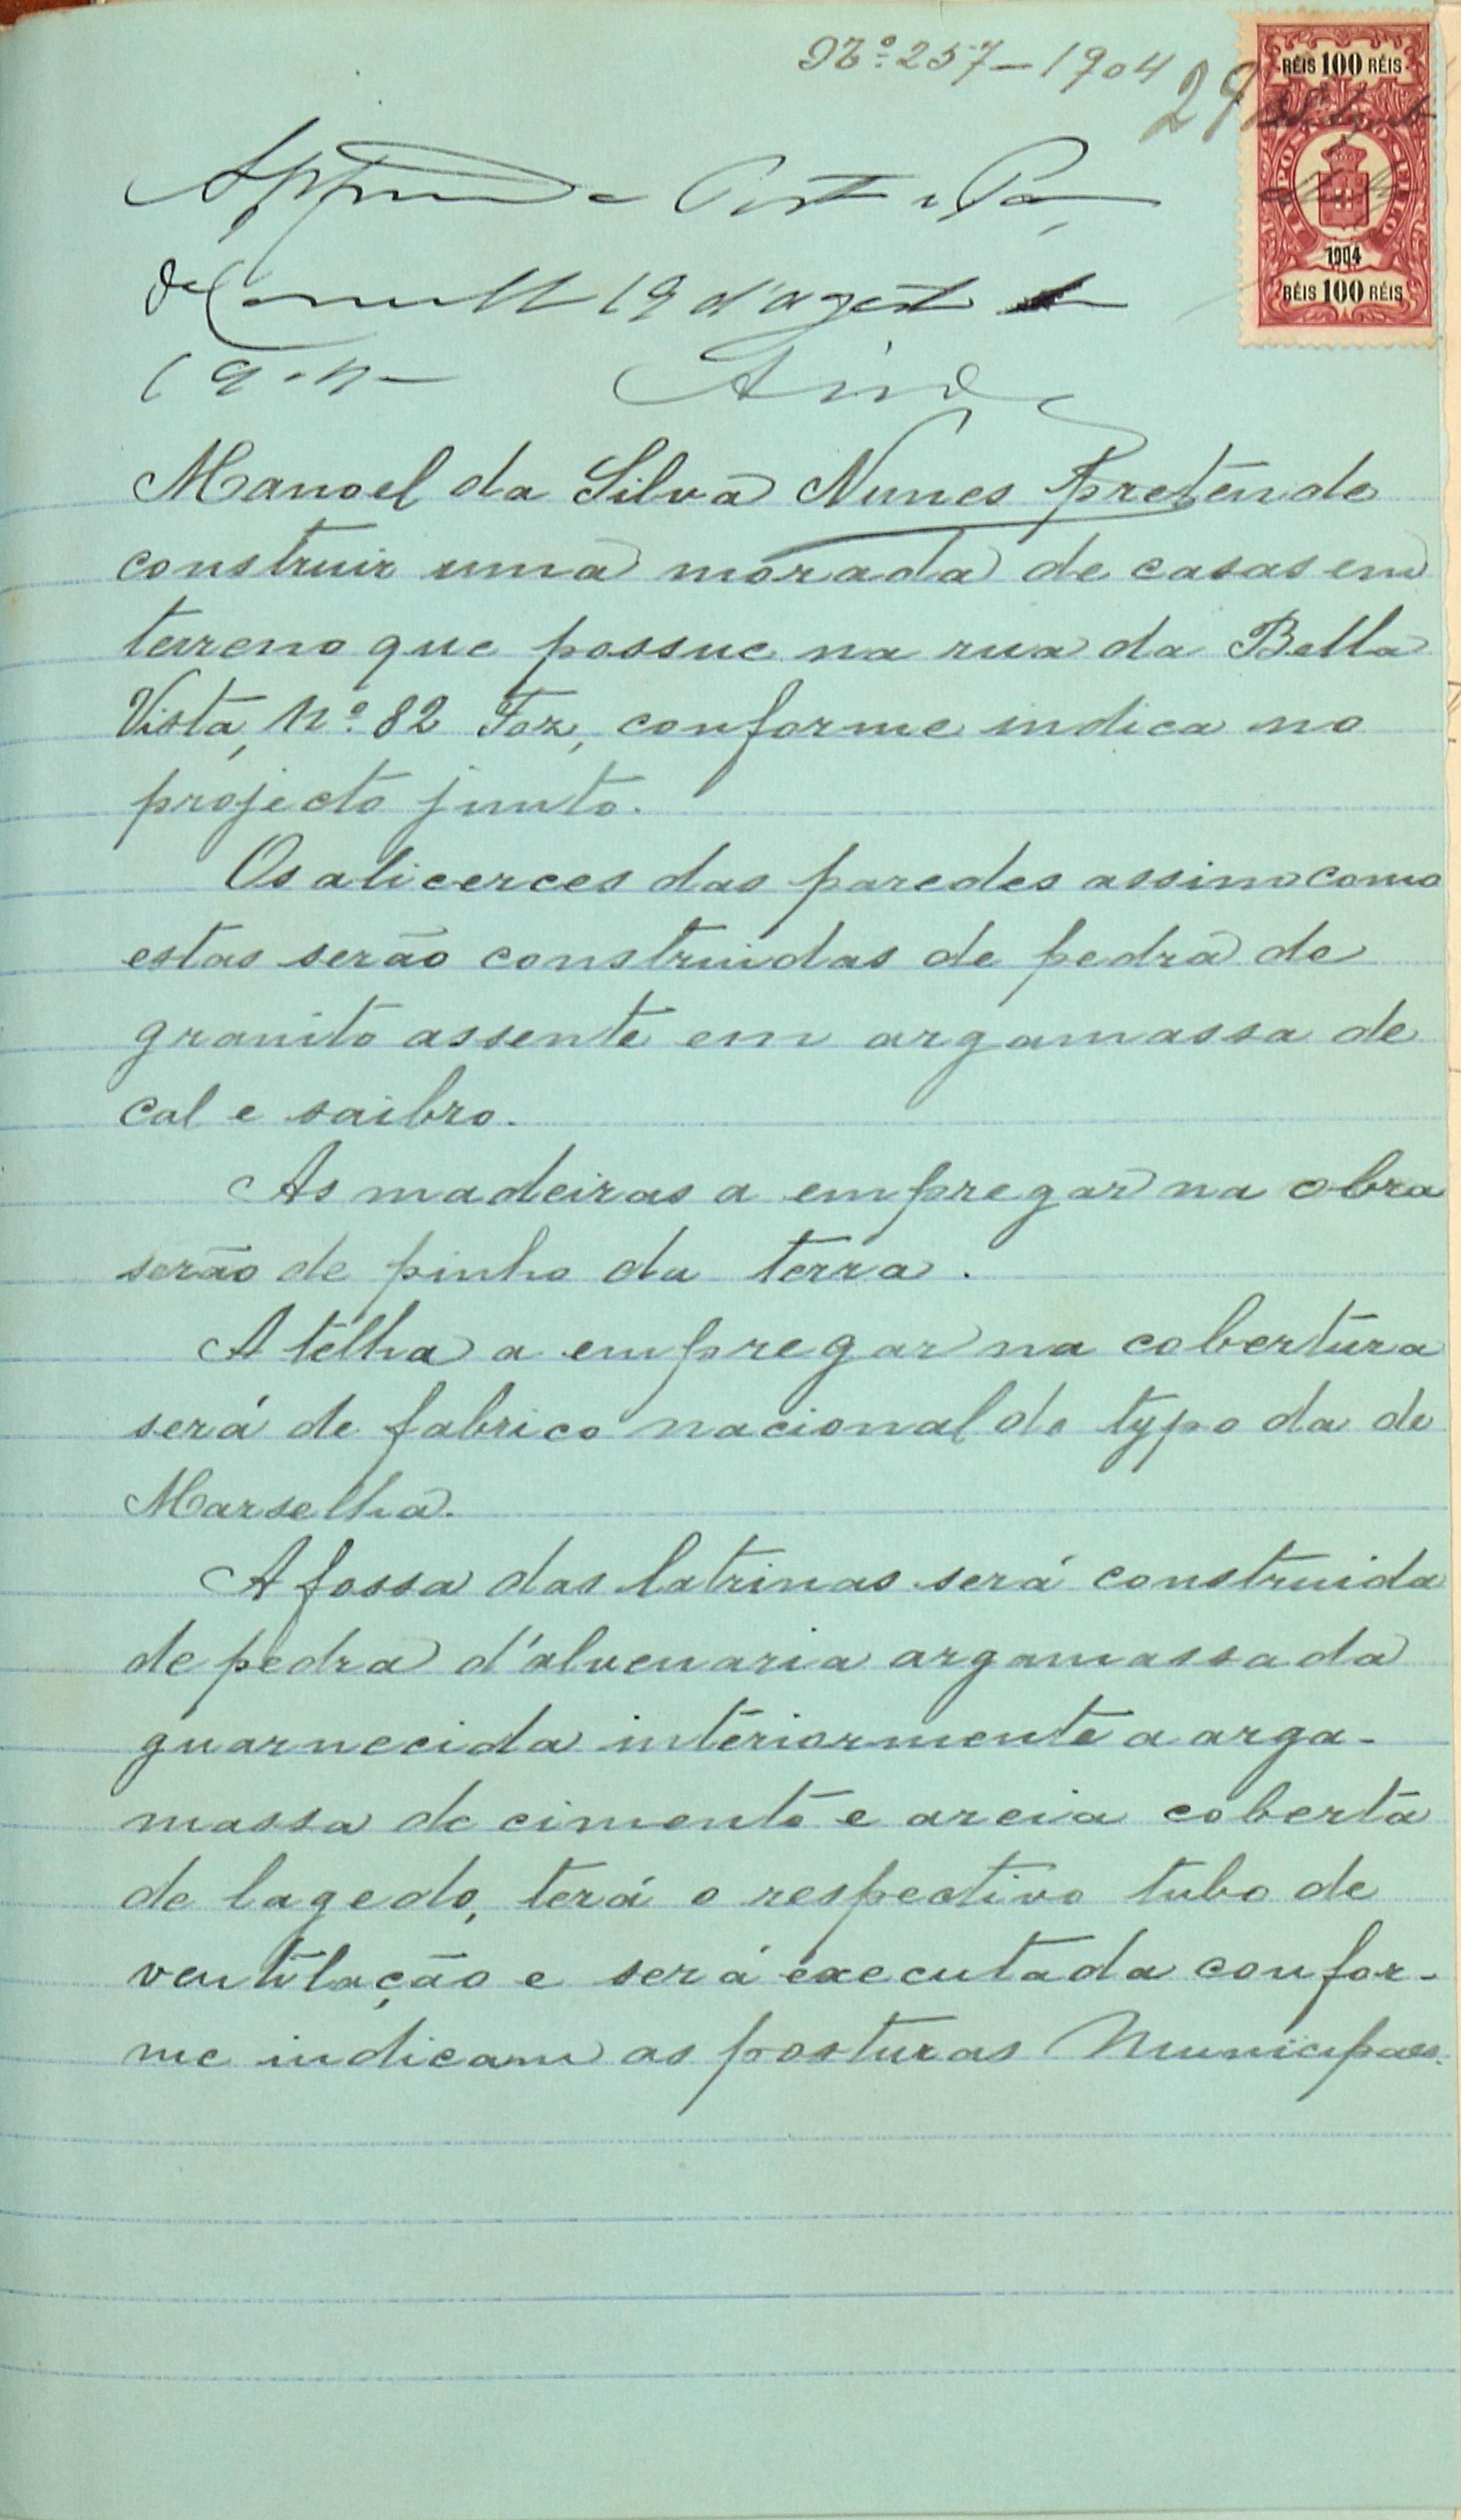 Nº 257-1904
29
RÉIS 100 RÉIS
IMPOSTO DO SELLO
1904
RÉIS 100 RÉIS
19 d'agosto
Manoel da Silva Nunes pretende
construir uma morada de casas em
terreno que possue na rua da Bella
Vista, nº 82 Foz, conforme indica no
projecto junto.
Os alicerces das paredes assim como
estas serão construidas de pedra de
granito assente em argamassa de
cal e saibro.
As madeiras a empregar na obra
serão de pinho da terra.
A telha a empregar na cobertura
será de fabrico nacional do typo da de
Marselha.
A fossa das latrinas será construida
de pedra d'alvenaria argamassada
guarnecida interiormente a arga-
massa de cimento e areia coberta
de lagedo, terá o respectivo tubo de
ventilação e será executada confor-
me indicam as posturas Municipaes.